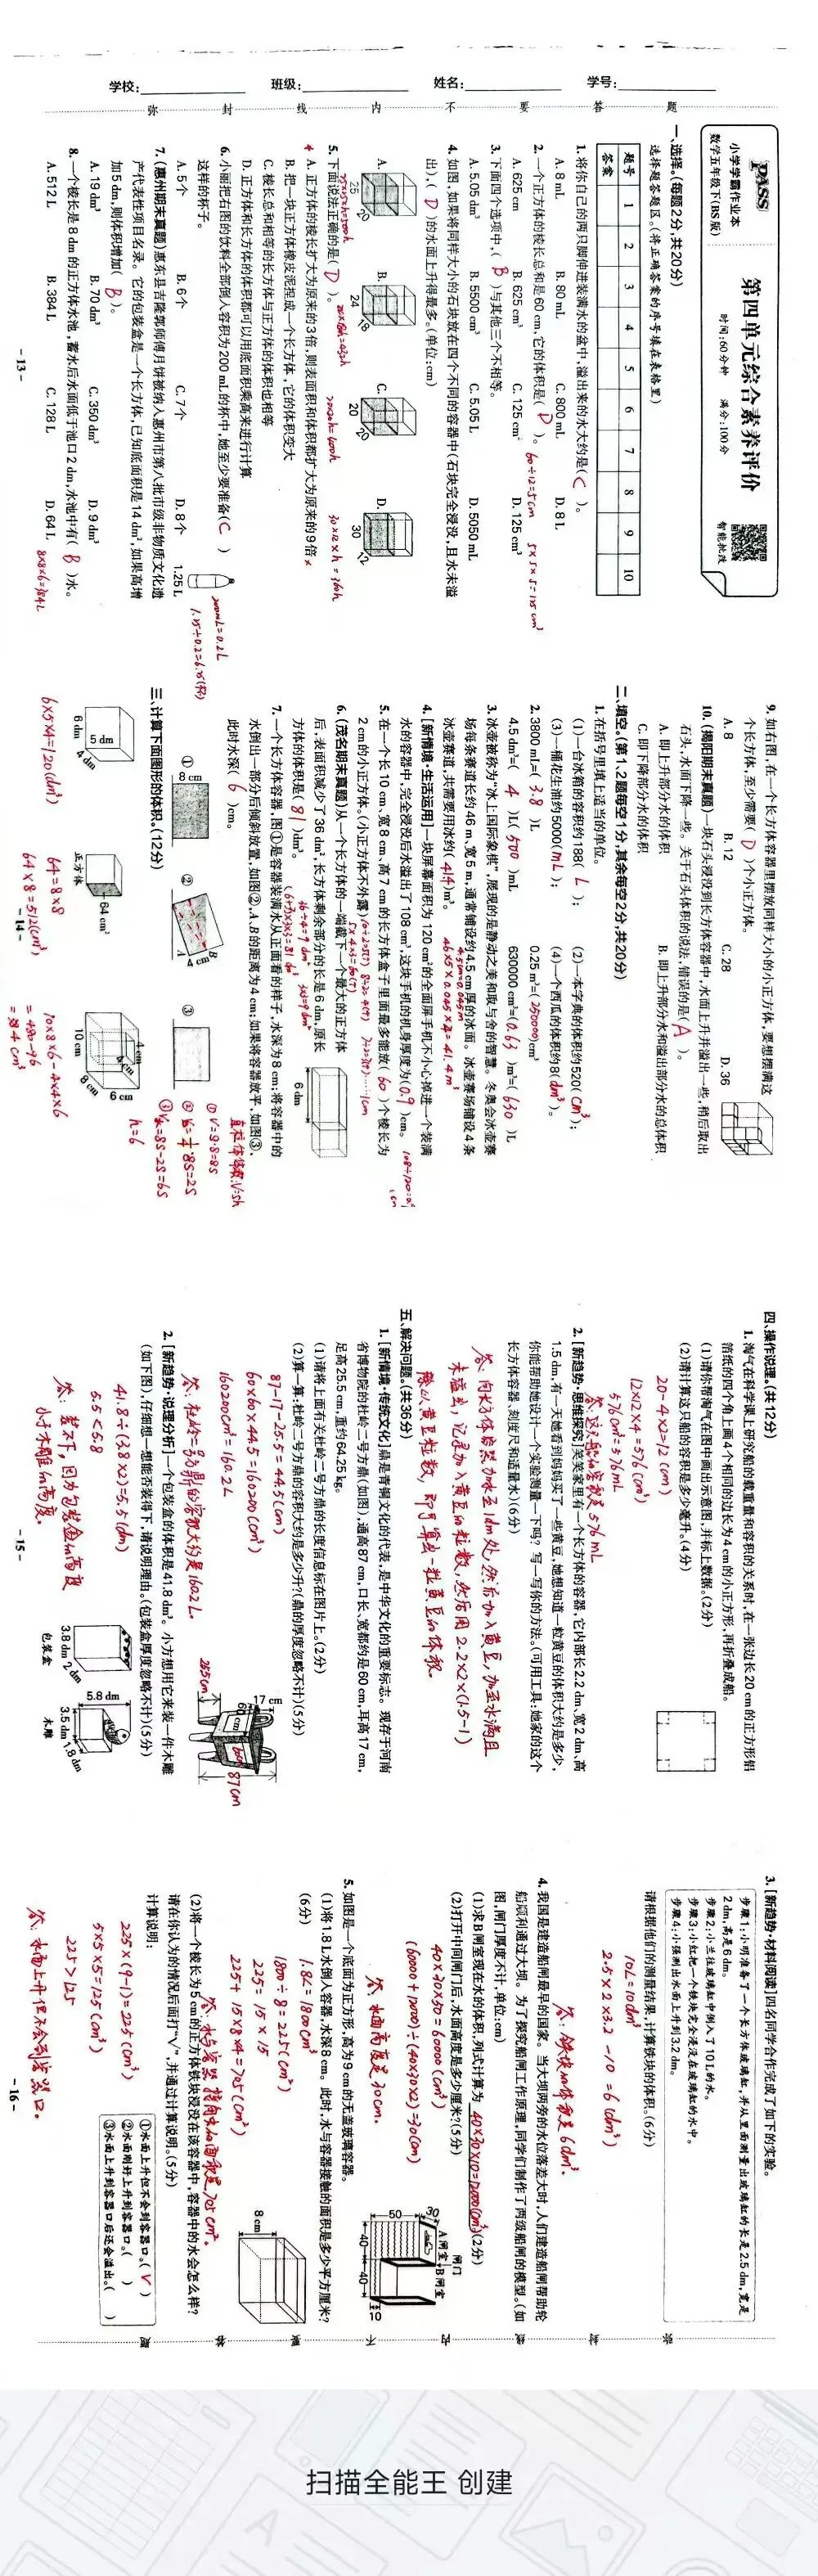 学校: 班级: 姓名: 学号:
弥 封 线 内 不 要 答 题
PASS
小学学霸作业本
数学五年级下(BS版)
第四单元综合素养评价
时间:60分钟 满分:100分
智能批改
一、选择。(每题2分,共20分)
选择题答题区。(将正确答案的序号填在表格里)
题号 1 2 3 4 5 6 7 8 9 10
答案
1. 将你自己的两只脚伸进装满水的盆中,溢出来的水大约是( C )。
A. 8 mL B. 80 mL C. 800 mL D. 8 L
2. 一个正方体的棱长总和是60 cm,它的体积是( D )。 60÷12=5cm 5×5×5=125cm³
A. 625 cm B. 625 cm³ C. 125 cm² D. 125 cm³
3. 下面四个选项中,( B )与其他三个不相等。
A. 5.05 dm³ B. 5500 cm³ C. 5.05 L D. 5050 mL
4. 如图,如果将同样大小的石块放在四个不同的容器中(石块完全浸没,且水未溢
出),( D )的水面上升得最多。(单位:cm)
A. 25 20 B. 24 18 C. 20 20 D. 30 12
30×12×h=360h
5. 下面说法正确的是( D )。
A. 正方体的棱长扩大为原来的3倍,则表面积和体积都扩大为原来的9倍 ×
B. 把一块正方体橡皮泥捏成一个长方体,它的体积变大
C. 棱长总和相等的长方体与正方体的体积也相等
D. 正方体和长方体的体积都可以用底面积乘高来进行计算
6. 小丽把右图的饮料全部倒入容积为200 mL的杯中,她至少要准备( C )
这样的杯子。
200mL=0.2L
1.25÷0.2=6.25(杯)
A. 5个 B. 6个 C. 7个 D. 8个 1.25 L
7. (惠州期末真题)惠东县吉隆郭师傅月饼被纳入惠州市第八批市级非物质文化遗
产代表性项目名录。它的包装盒是一个长方体,已知底面积是14 dm²,如果高增
加5 dm,则体积增加( B )。
A. 19 dm³ B. 70 dm³ C. 350 dm³ D. 9 dm³
8. 一个棱长是8 dm的正方体水池,蓄水后水面低于池口2 dm,水池中有( B )水。
A. 512 L B. 384 L C. 128 L D. 64 L
8×8×6=384L
- 13 -
9. 如右图,在一个长方体容器里摆放同样大小的小正方体,要想摆满这
个长方体,至少需要( D )个小正方体。
A. 8 B. 12 C. 28 D. 36
10. (揭阳期末真题)一块石头浸没到长方体容器中,水面上升并溢出一些,稍后取出
石头,水面下降一些。关于石头体积的说法,错误的是( A )。
A. 即上升部分水的体积 B. 即上升部分水和溢出部分水的总体积
C. 即下降部分水的体积
二、填空。(第1、2题每空1分,其余每空2分,共20分)
1. 在括号里填上适当的单位。
(1)一台冰箱的容积约188( L ); (2)一本字典的体积约520( cm³ );
(3)一桶花生油约5000( mL ); (4)一个西瓜的体积约8( dm³ )。
2. 3800 mL=( 3.8 )L 0.25 m³=( 250000 )cm³
4.5 dm³=( 4 )L( 500 )mL 630000 cm³=( 0.63 )m³=( 630 )L
3. 冰壶被称为“冰上国际象棋”,展现的是静动之美和取与舍的智慧。冬奥会冰壶赛
场每条赛道长约46 m,宽5 m,通常铺设约4.5 cm厚的冰面。冰壶赛场铺设4条
冰壶赛道,共需要用冰约( 41.4 )m³。 46×5×0.045×4=41.4m³
4. [新情境·生活运用]一块屏幕面积为120 cm²的全面屏手机不小心掉进一个装满
水的容器中,完全浸没后水溢出了108 cm³,这块手机的机身厚度为( 0.9 )cm。
5. 在一个长10 cm、宽8 cm、高7 cm的长方体盒子里面最多能放( 60 )个棱长为
2 cm的小正方体。(小正方体不外露)
5×4×3=60(个)
6. (茂名期末真题)从一个长方体的一端截下一个最大的正方体
后,表面积减少了36 dm²,长方体剩余部分的长是6 dm,原长
方体的体积是( 81 )dm³。
6 dm
36÷4=9dm² 3×3=9dm²
(6+3)×3×3=81dm³
7. 一个长方体容器,图①是容器装满水从正面看的样子,水深为8 cm;将容器中的
水倒出一部分后倾斜放置,如图②,A、B的距离为4 cm;如果将容器放平,如图③,
此时水深( 6 )cm。
① 8 cm ② A B 4 cm ③
直柱体体积:V=sh
①V=8·S=8S
②V=¼·8S=2S
③V=8S-2S=6S
h=6
三、计算下面图形的体积。(12分)
5 dm 6 dm 4 dm
正方体 64 cm²
4cm 4cm 6 cm 10 cm 8 cm
6×5×4=120(dm³)
64=8×8
64×8=512(cm³)
10×8×6-4×4×6
=480-96
=384cm³
- 14 -
四、操作说理。(共12分)
1. 淘气在科学课上研究船的载重量和容积的关系时,在一张边长20 cm的正方形铝
箔纸的四个角上画4个相同的边长为4 cm的小正方形,再折叠成船。
(1)请你帮淘气在图中画出示意图,并标上数据。(2分)
(2)请计算这只船的容积是多少毫升。(4分)
20-4×2=12(cm)
12×12×4=576(cm³)
576cm³=576mL
答:这只船的容积是576mL
2. [新趋势·思维探究]芙芙家里有一个长方体的容器,它内部长2.2 dm、宽2 dm、高
1.5 dm,有一天她看到妈妈买了一些黄豆,她想知道一粒黄豆的体积大约是多少,
你能帮助她设计一个实验测量一下吗?写一写你的方法。(可用工具:她家的这个
长方体容器、刻度尺和适量水)(6分)
答:向长方体容器加水至1dm处,然后加入黄豆,加至水满且
未溢出,记录加入黄豆的粒数,然后用2.2×2×(1.5-1)
除以黄豆粒数,即可算出一粒黄豆的体积。
五、解决问题。(共36分)
1. [新情境·传统文化]鼎是青铜文化的代表,是中华文化的重要标志。现存于河南
省博物院的杜岭二号方鼎(如图),通高87 cm,口长、宽都约是60 cm,耳高17 cm,
足高25.5 cm,重约64.25 kg。
(1)请将上面有关杜岭二号方鼎的长度信息标在图片上。(2分)
(2)算一算:杜岭二号方鼎的容积大约是多少升?(鼎的厚度忽略不计)(5分)
87-17-25.5=44.5(cm)
60×60×44.5=160200(cm³)
160200cm³=160.2L
答:杜岭二号方鼎的容积大约是160.2L。
17 cm 60cm 60cm 87cm 25.5cm
2. [新趋势·说理分析]一个包装盒的体积是41.8 dm³。小方想用它来装一件木雕
(如下图),仔细想一想能否装得下,请说明理由。(包装盒厚度忽略不计)(5分)
41.8÷(3.8×2)=5.5(dm)
5.5<5.8
答:装不下,因为包装盒的高度
小于木雕的高度。
3.8 dm 2 dm 包装盒
5.8 dm 3.5 dm 1.8 dm 木雕
- 15 -
3. [新趋势·材料阅读]四名同学合作完成了如下的实验。
步骤1:小明准备了一个长方体玻璃缸,并从里面测量出玻璃缸的长是2.5 dm,宽是
2 dm,高是6 dm。
步骤2:小兰往玻璃缸中倒入了10 L的水。
步骤3:小红把一个铁块完全浸没在玻璃缸的水中。
步骤4:小强测出水面上升到3.2 dm。
请根据他们的测量结果,计算铁块的体积。(6分)
10L=10dm³
2.5×2×3.2-10=6(dm³)
答:铁块的体积是6dm³。
4. 我国是建造船闸最早的国家。当大坝两旁的水位落差大时,人们建造船闸帮助轮
船顺利通过大坝。为了探究船闸工作原理,同学们制作了两级船闸的模型。(如
图,闸门厚度不计,单位:cm)
(1)求B闸室现在水的体积,列式计算为 40×30×10=12000(cm³) (2分)
(2)打开中间闸门后,水面高度是多少厘米?(5分)
40×30×50=60000(cm³)
(60000+12000)÷(40×30×2)=30(cm)
答:水面高度是30cm。
闸门 A闸室 B闸室 30 50 40 40 10
5. 如图是一个底面为正方形,高为9 cm的无盖玻璃容器。
(1)将1.8 L水倒入容器,水深8 cm。此时,水与容器接触的面积是多少平方厘米?
(6分)
1.8L=1800cm³
1800÷8=225(cm²)
225=15×15
225+15×8×4=705(cm²)
答:水与容器接触的面积是705cm²。
8 cm
(2)将一个棱长为5 cm的正方体铁块浸没在该容器中,容器中的水会怎么样?
请在你认为的情况后面打“√”,并通过计算说明。(5分)
计算说明:
①水面上升但不会到容器口。( √ )
②水面刚好上升到容器口。( )
③水面上升到容器口后还会溢出。( )
225×(9-8)=225(cm³)
5×5×5=125(cm³)
225>125
答:水面上升但不会到容器口。
- 16 -
扫描全能王 创建